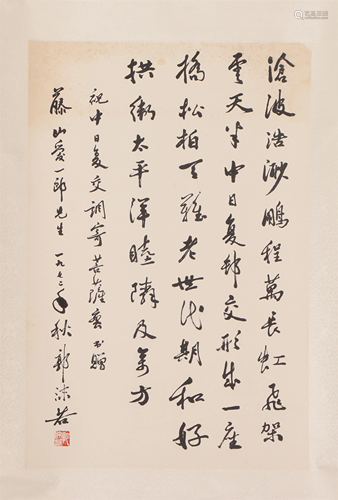 滄波浩渺鵬程萬長虹飛架
雲天半中日复邦交形成一座
橋松柏天難老世代期和好
拱衛太平洋睦鄰及萬方
祝中日复交調寄菩薩蠻书贈
藤山愛一郎先生 一九七二年秋 郭沫若